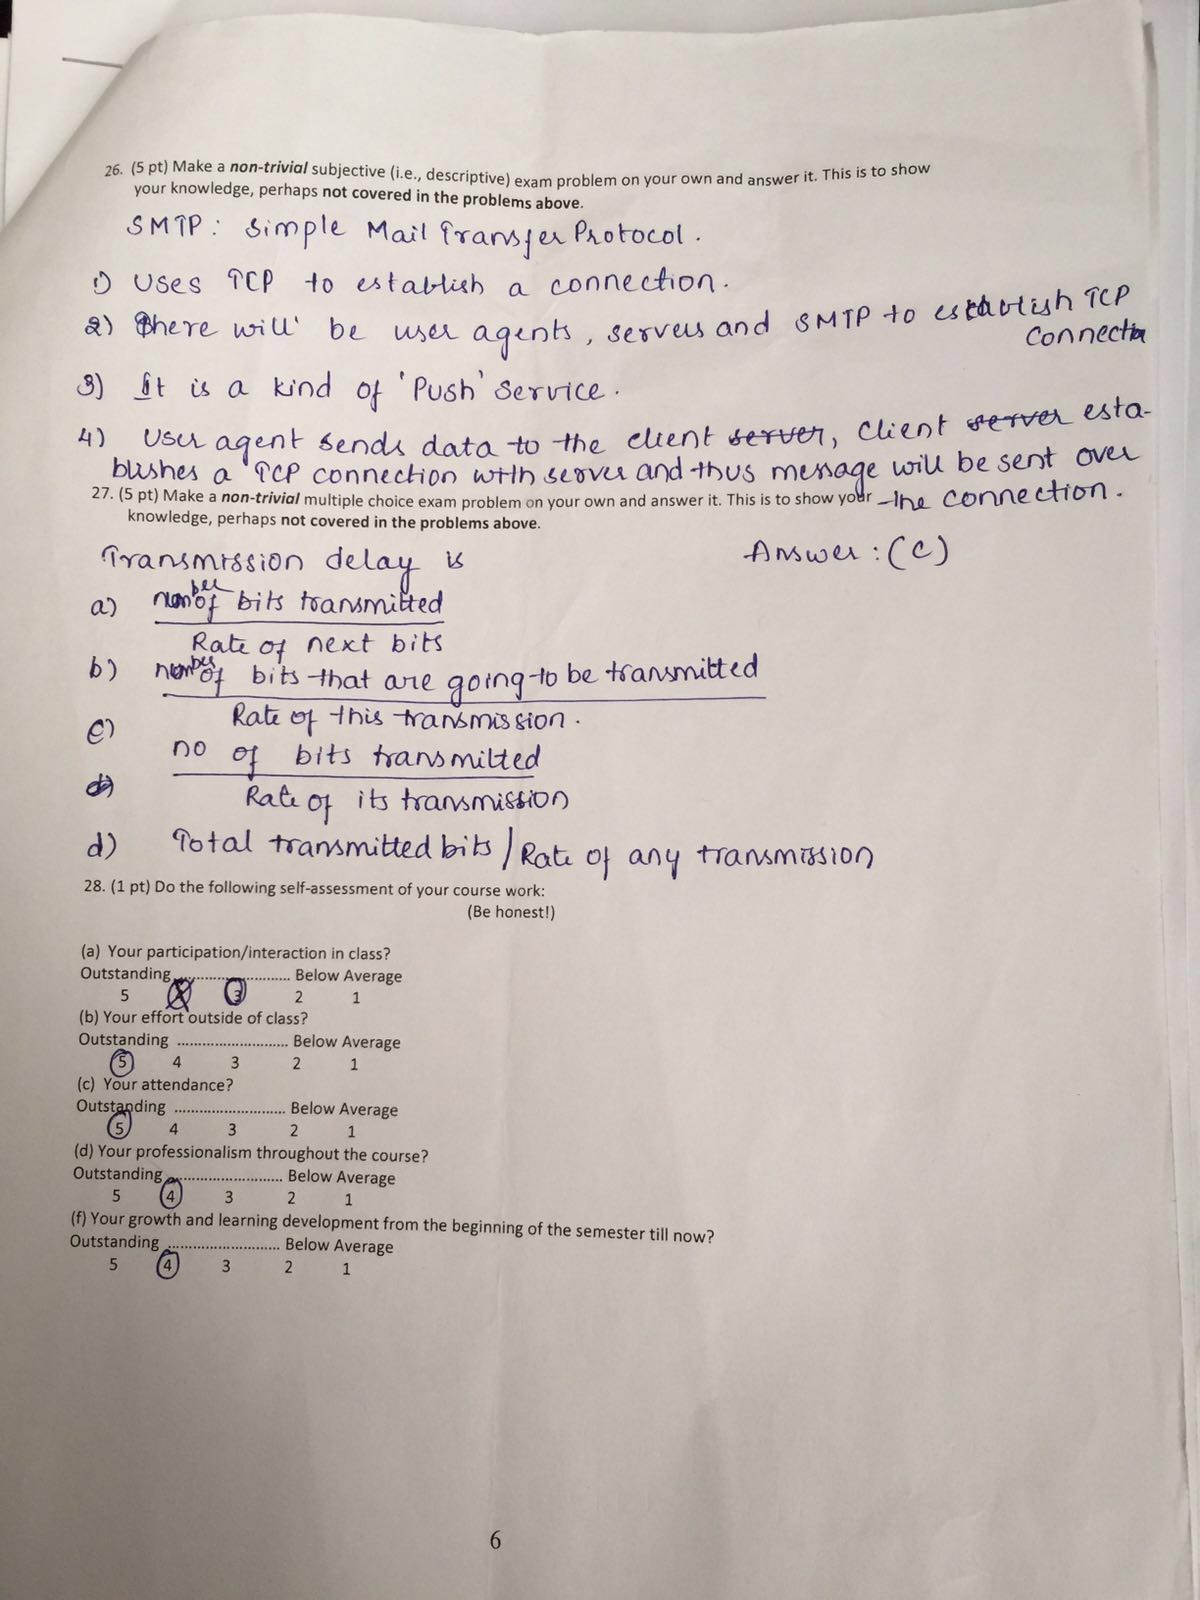 26. (5 pt) Make a non-trivial subjective (i.e., descriptive) exam problem on your own and answer it. This is to show
your knowledge, perhaps not covered in the problems above.
SMTP: Simple Mail Transfer Protocol.
1) Uses TCP to establish a connection.
2) There will be user agents, servers and SMTP to establish TCP
Connectio
3) It is a kind of 'Push' Service.
4) User agent sends data to the client server, Client server esta-
blishes a TCP connection with server and thus message will be sent over
27. (5 pt) Make a non-trivial multiple choice exam problem on your own and answer it. This is to show your the connection.
knowledge, perhaps not covered in the problems above.
Transmission delay is Answer: (C)
a) number of bits transmitted
Rate of next bits
b) number of bits that are going to be transmitted
Rate of this transmission.
c) no of bits transmitted
d)
Rate of its transmission
d) Total transmitted bits / Rate of any transmission
28. (1 pt) Do the following self-assessment of your course work:
(Be honest!)
(a) Your participation/interaction in class?
Outstanding ........................... Below Average
5 4 3 2 1
(b) Your effort outside of class?
Outstanding ........................... Below Average
5 4 3 2 1
(c) Your attendance?
Outstanding ........................... Below Average
5 4 3 2 1
(d) Your professionalism throughout the course?
Outstanding ........................... Below Average
5 4 3 2 1
(f) Your growth and learning development from the beginning of the semester till now?
Outstanding ........................... Below Average
5 4 3 2 1
6